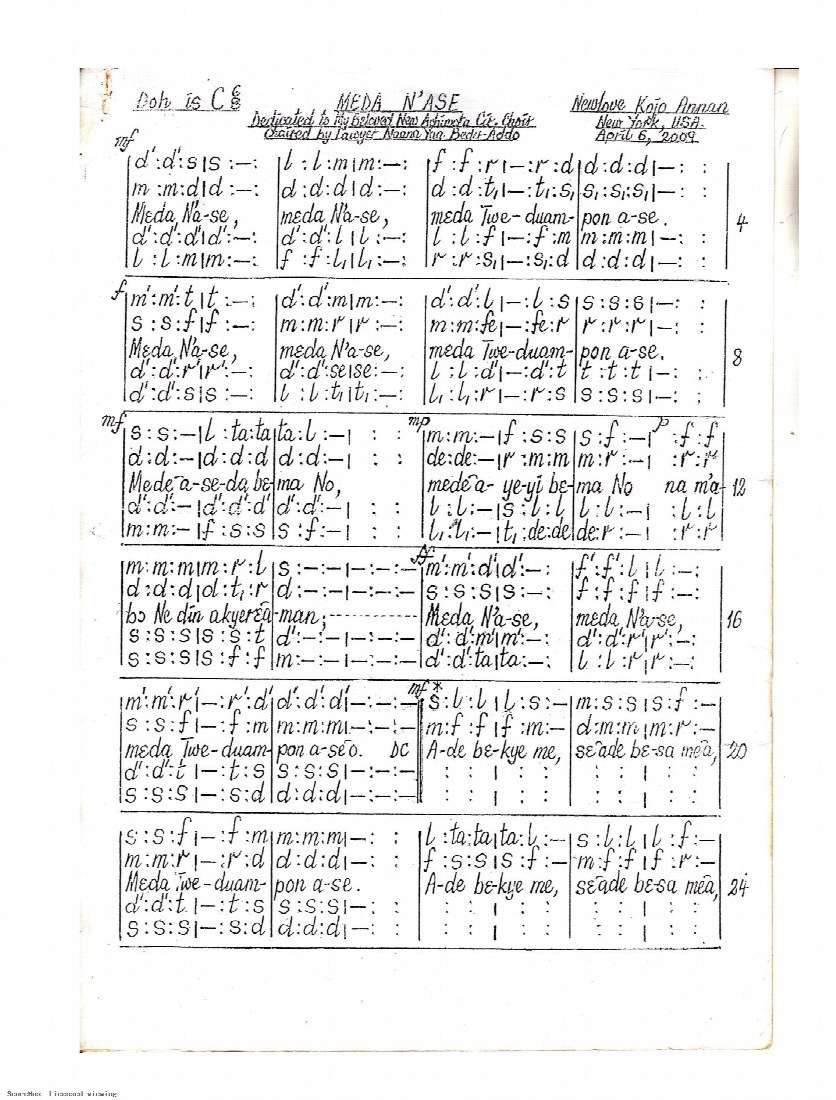 Doh is C 6/8
MEDA N'ASE
Newlove Kojo Annan
Dedicated to My Beloved New Achimota C.K. Choir
New York, USA.
Chaired by Lawyer Naana Yaa Bedu-Addo
April 6, 2009
mf
d':d':s|s:–: l:l:m|m:–: f:f:r|–:r:d d:d:d|–: :
m:m:d|d:–: d:d:d|d:–: d:d:t₁|–:t₁:s₁ s₁:s₁:s₁|–: :
Meda N'a-se, meda N'a-se, meda Twe-duam-pon a-se. 4
d':d':d'|d':–: d':d':l|l:–: l:l:f|–:f:m m:m:m|–: :
l:l:m|m:–: f:f:l₁|l₁:–: r:r:s₁|–:s₁:d d:d:d|–: :
f
m':m':t|t:–: d':d':m|m:–: d':d':l|–:l:s s:s:s|–: :
s:s:f|f:–: m:m:r|r:–: m:m:fe|–:fe:r r:r:r|–: :
Mɛda N'a-se, mɛda N'a-se, meda Twe-duam-pon a-se. 8
d':d':r'|r':–: d':d':se|se:–: l:l:d'|–:d':t t:t:t|–: :
d':d':s|s:–: l:l:t₁|t₁:–: l₁:l₁:r|–:r:s s:s:s|–: :
mf mp p
s:s:–|l:ta:ta ta:l:–| : : m:m:–|f:s:s s:f:–| :f:f
d:d:–|d:d:d d:d:–| : : de:de:–|r:m:m m:r:–| :r:r
Mede a-se-da bɛ-ma No, mede a-ye-yi bɛ-ma No na m'a- 12
d':d':–|d':d':d' d':d':–| : : l:l:–|s:l:l l:l:–| :l:l
m:m:–|f:s:s s:f:–| : : l₁:l₁:–|t₁:de:de de:r:–| :r:r
m:m:m|m:r:l s:–:–|–:–:– ff m':m':d'|d':–: f':f':l|l:–:
d:d:d|d:t₁:r d:–:–|–:–:– s:s:s|s:–: f:f:f|f:–:
bɔ Ne din akyerɛ a-man; Meda N'a-se, meda N'a-se, 16
s:s:s|s:s:t d':–:–|–:–:– d':d':m'|m':–: d':d':r'|r':–:
s:s:s|s:f:f m:–:–|–:–:– d':d':ta|ta:–: l:l:r|r:–:
mf *
m':m':r'|–:r':d' d':d':d'|–:–:– s:l:l|l:s:– m:s:s|s:f:–
s:s:f|–:f:m m:m:m|–:–:– m:f:f|f:m:– d:m:m|m:r:–
meda Twe-duam-pon a-se o. DC A-de bɛ-kye me, sɛ ade bɛ-sa me a, 20
d':d':t|–:t:s s:s:s|–:–:– : : | : : : : | : :
s:s:s|–:s:d d:d:d|–:–:– : : | : : : : | : :
s:s:f|–:f:m m:m:m|–: : l:ta:ta|ta:l:– s:l:l|l:f:–
m:m:r|–:r:d d:d:d|–: : f:s:s|s:f:– m:f:f|f:r:–
Mɛda Twe-duam-pon a-se. A-de bɛ-kye me, sɛ ade bɛ-sa me a, 24
d':d':t|–:t:s s:s:s|–: : : : | : : : : | : :
s:s:s|–:s:d d:d:d|–: : : : | : : : : | : :